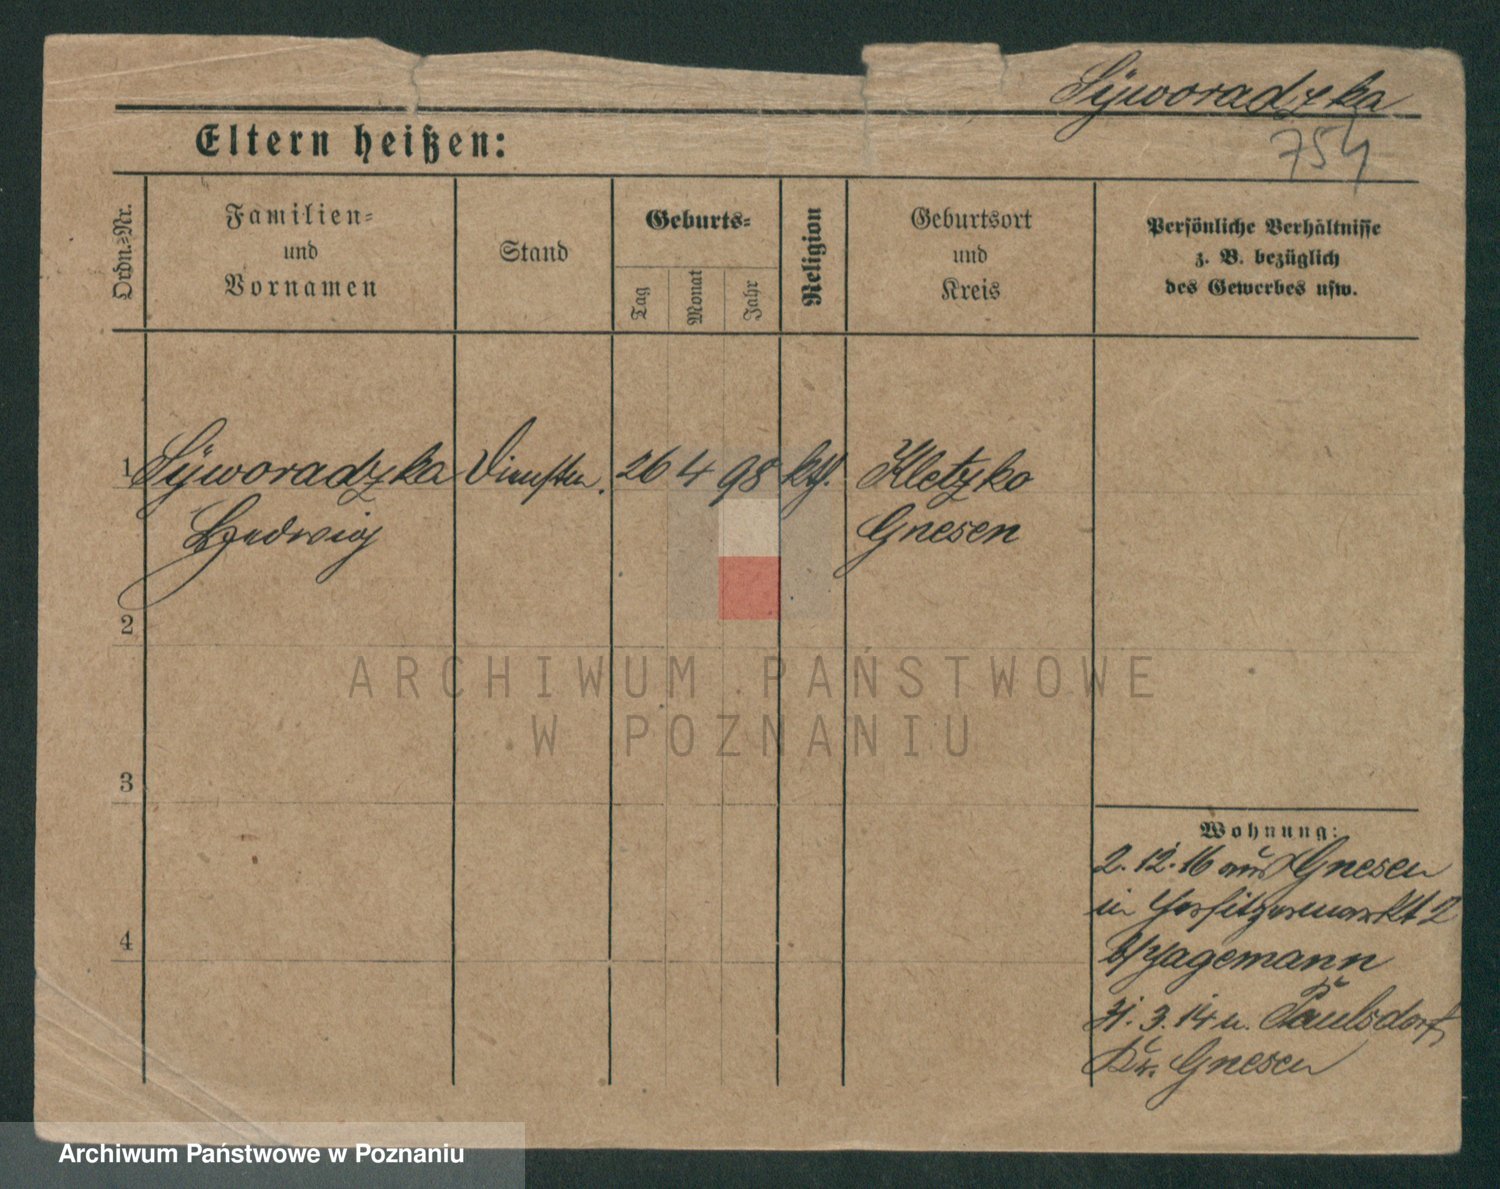 Syworadzka
754
Eltern heißen:
Ordn.-Nr.
Familien-
und
Vornamen
Stand
Geburts-
Tag
Monat
Jahr
Religion
Geburtsort
und
Kreis
Persönliche Verhältnisse
z. B. bezüglich
des Gewerbes usw.
1 Syworadzka 26 4 98 kth. Kletzko
Hedwig Gnesen
2
3
4
Wohnung:
2.12.16 aus Gnesen
in 2
Hagemann
31.3.17 n. Paulsdorf
Kr. Gnesen
ARCHIWUM PAŃSTWOWE
W POZNANIU
Archiwum Państwowe w Poznaniu